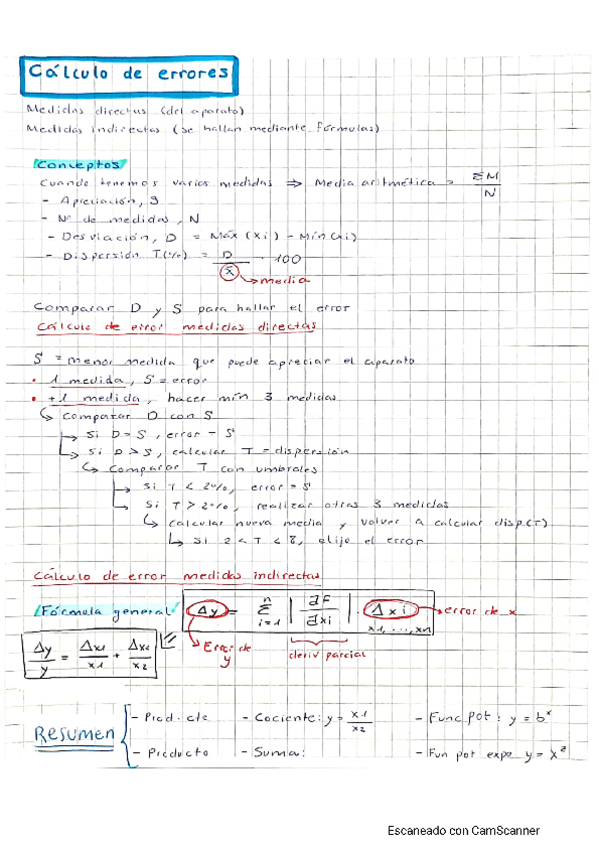 Cálculo de errores
Medidas directas (del aparato)
Medidas indirectas (se hallan mediante fórmulas)
Conceptos
Cuando tenemos varias medidas ⇒ Media aritmética = ΣM / N
- Apreciación, S
- Nº de medidas, N
- Desviación, D = Máx (xi) - Mín (xi)
- Dispersión T(%) = D / x̄ · 100
→ media
Comparar D y S para hallar el error
Cálculo de error medidas directas
S = menor medida que puede apreciar el aparato
• 1 medida, S = error
• +1 medida, hacer mín 3 medidas
↳ comparar D con S
↳ Si D = S, error = S
↳ Si D > S, calcular T = dispersión
↳ comparar T con umbrales
↳ Si T < 2%, error = S
↳ Si T > 2%, realizar otras 3 medidas
↳ calcular nueva media y volver a calcular disp(T)
↳ Si 2 < T < 8, elijo el error
Cálculo de error medidas indirectas
Fórmula general Δy = Σ i=1 n | ∂F / ∂xi | · Δxi → error de x
x1, ..., xn
→ Error de y
deriv parcial
Δy / y = Δx1 / x1 + Δx2 / x2
Resumen
- Prod. cte - Cociente: y = x1 / x2 - Func pot: y = bˣ
- Producto - Suma: - Fun pot expo y = xᵃ
Escaneado con CamScanner